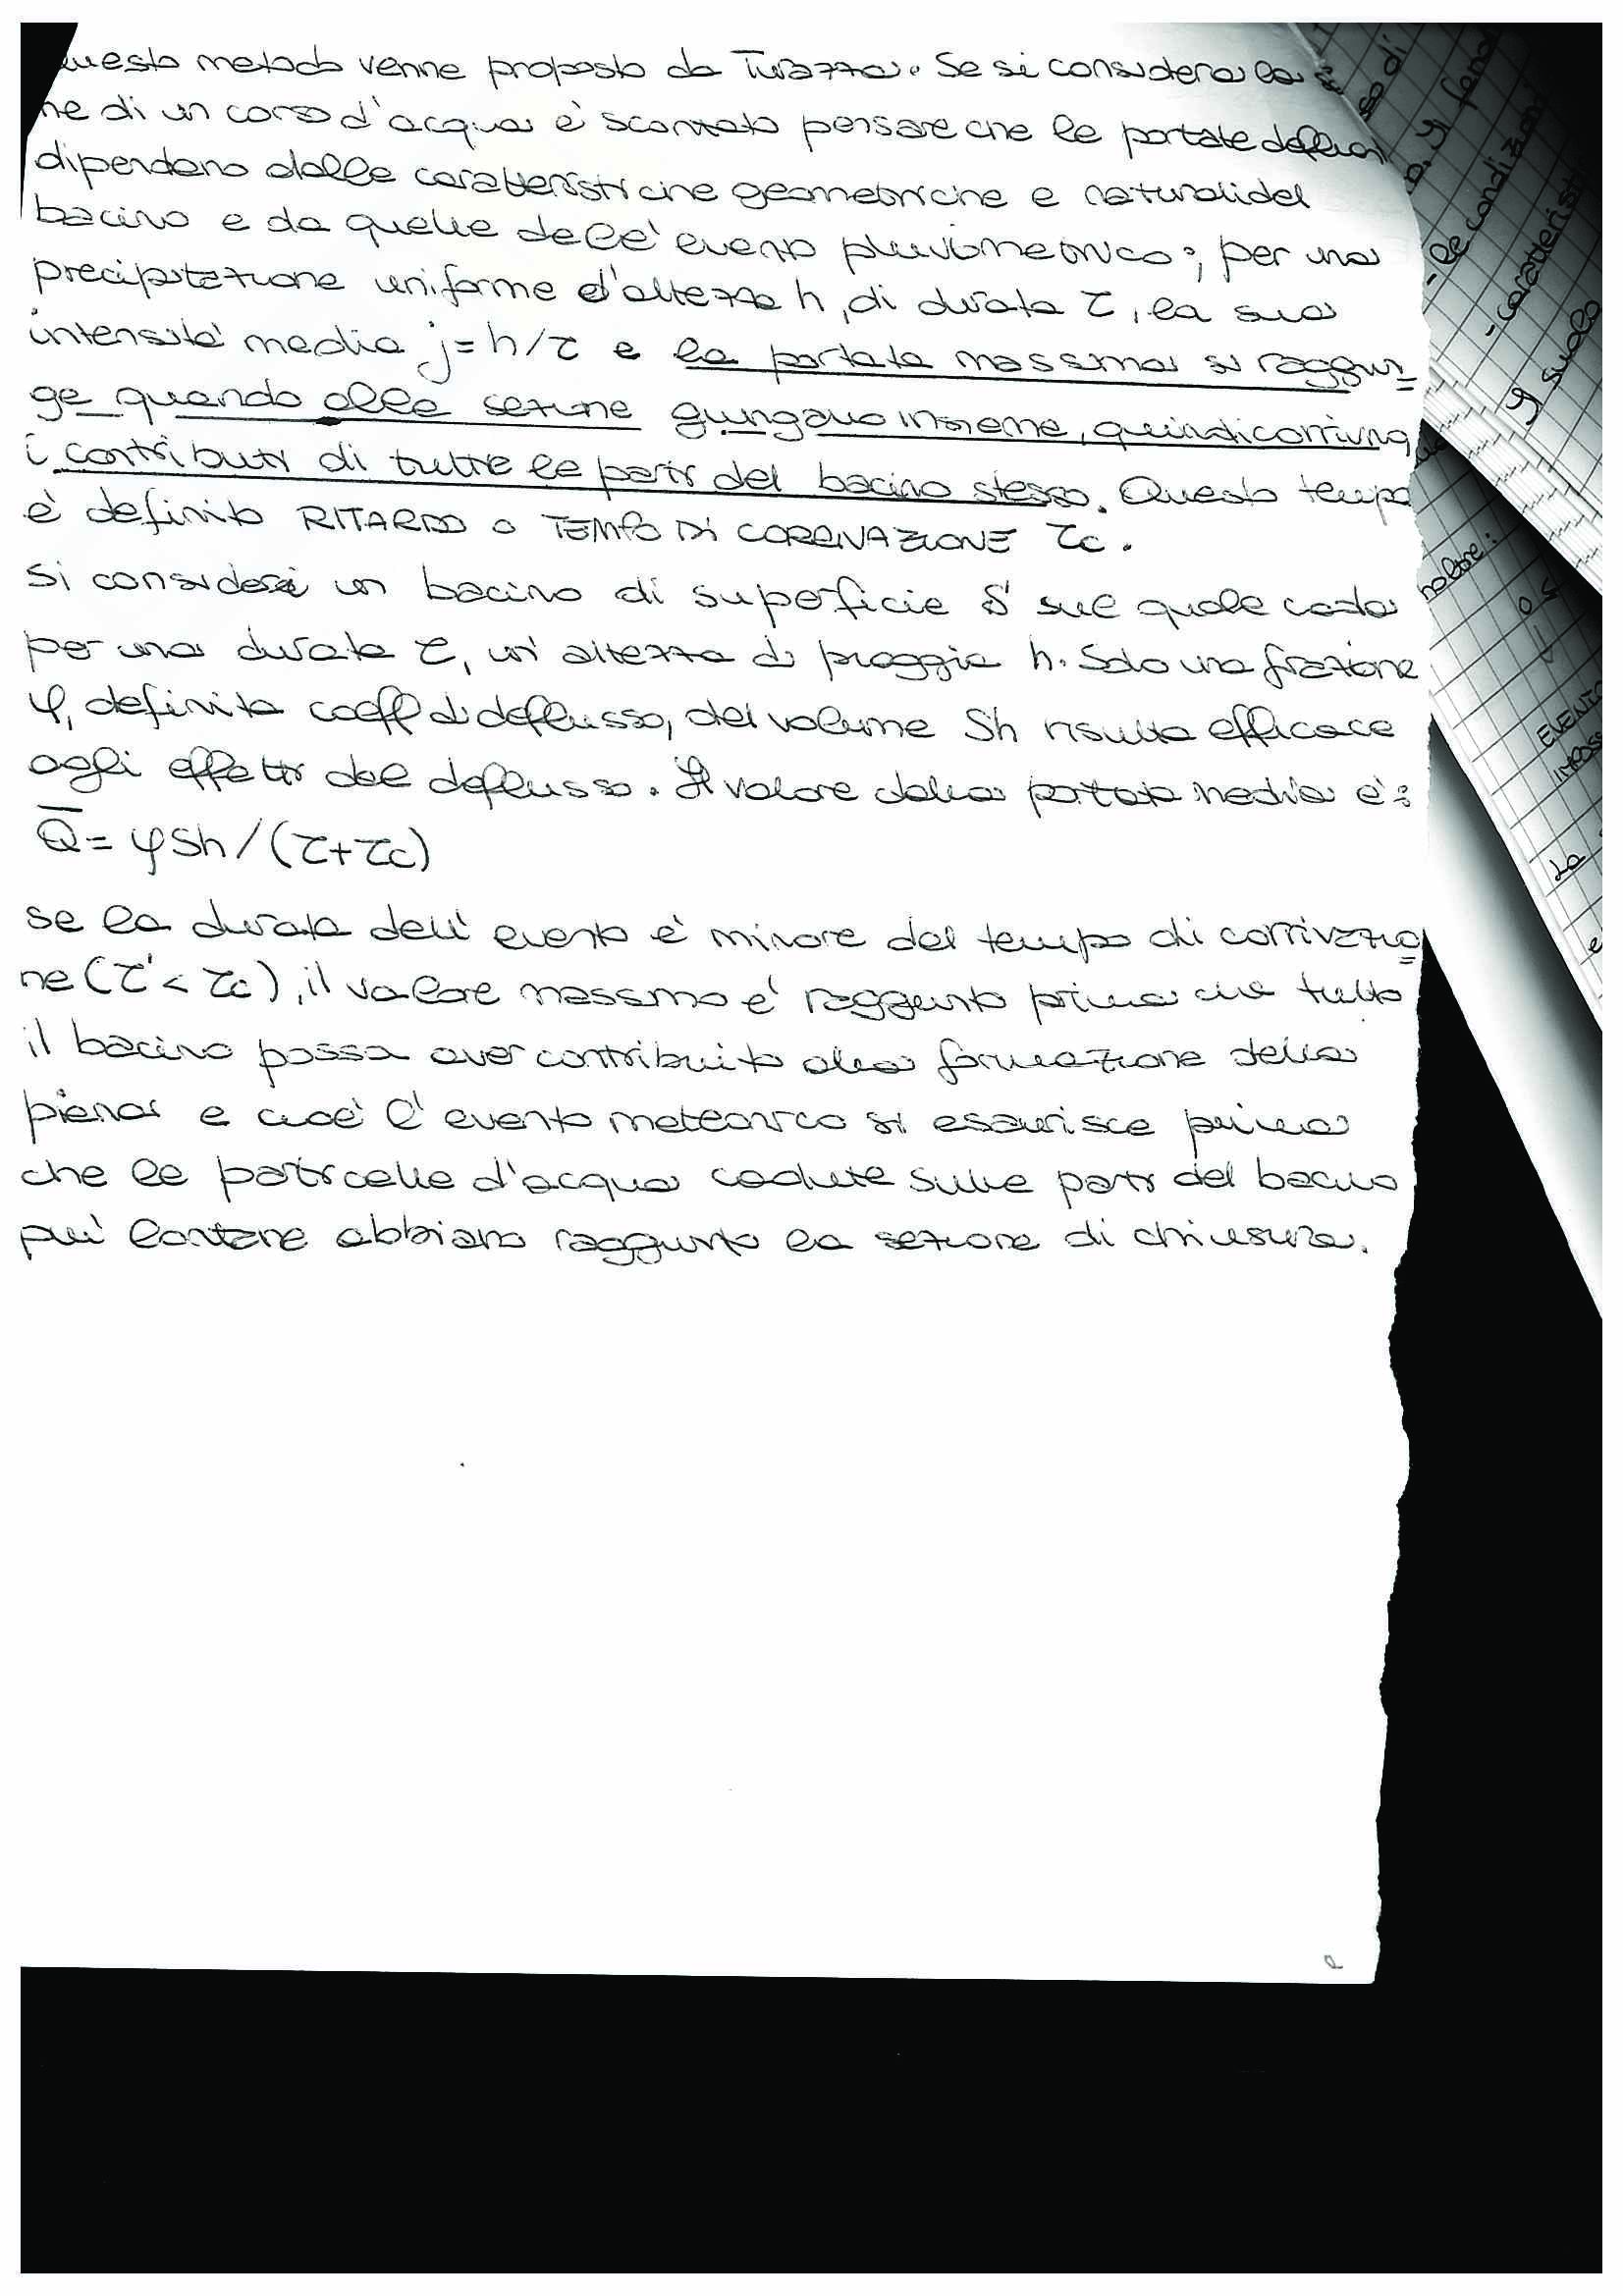 questo metodo venne proposto da Turazza. Se si considera la se
ne di un corso d'acqua è scontato pensare che le portate defluen
dipendano dalle caratteristiche geometriche e naturali del
bacino e da quelle dell'evento pluviometrico; per una
precipitazione uniforme d'altezza h, di durata τ, la sua
intensità media j = h/τ e la portata massima si raggiun=
ge quando alla sezione giungano insieme, quindi corrivino
i contributi di tutte le parti del bacino stesso. Questo tempo
è definito RITARDO o TEMPO DI CORRIVAZIONE τc.
Si consideri un bacino di superficie S sul quale cada
per una durata τ, un'altezza di pioggia h. Solo una frazione
φ, definita coeff di deflusso, del volume Sh risulta efficace
agli effetti del deflusso. Il valore della portata media è:
Q̅ = φSh/(τ+τc)
se la durata dell'evento è minore del tempo di corrivazio=
ne (τ' < τc), il valore massimo è raggiunto prima che tutto
il bacino possa aver contribuito alla formazione della
piena e cioè l'evento meteorico si esaurisce prima
che le particelle d'acqua cadute sulle parti del bacino
più lontane abbiano raggiunto la sezione di chiusura.
so di
Il feno
- le condizioni
- caratterist
Il suolo
noltre:
EVENTO
La
e